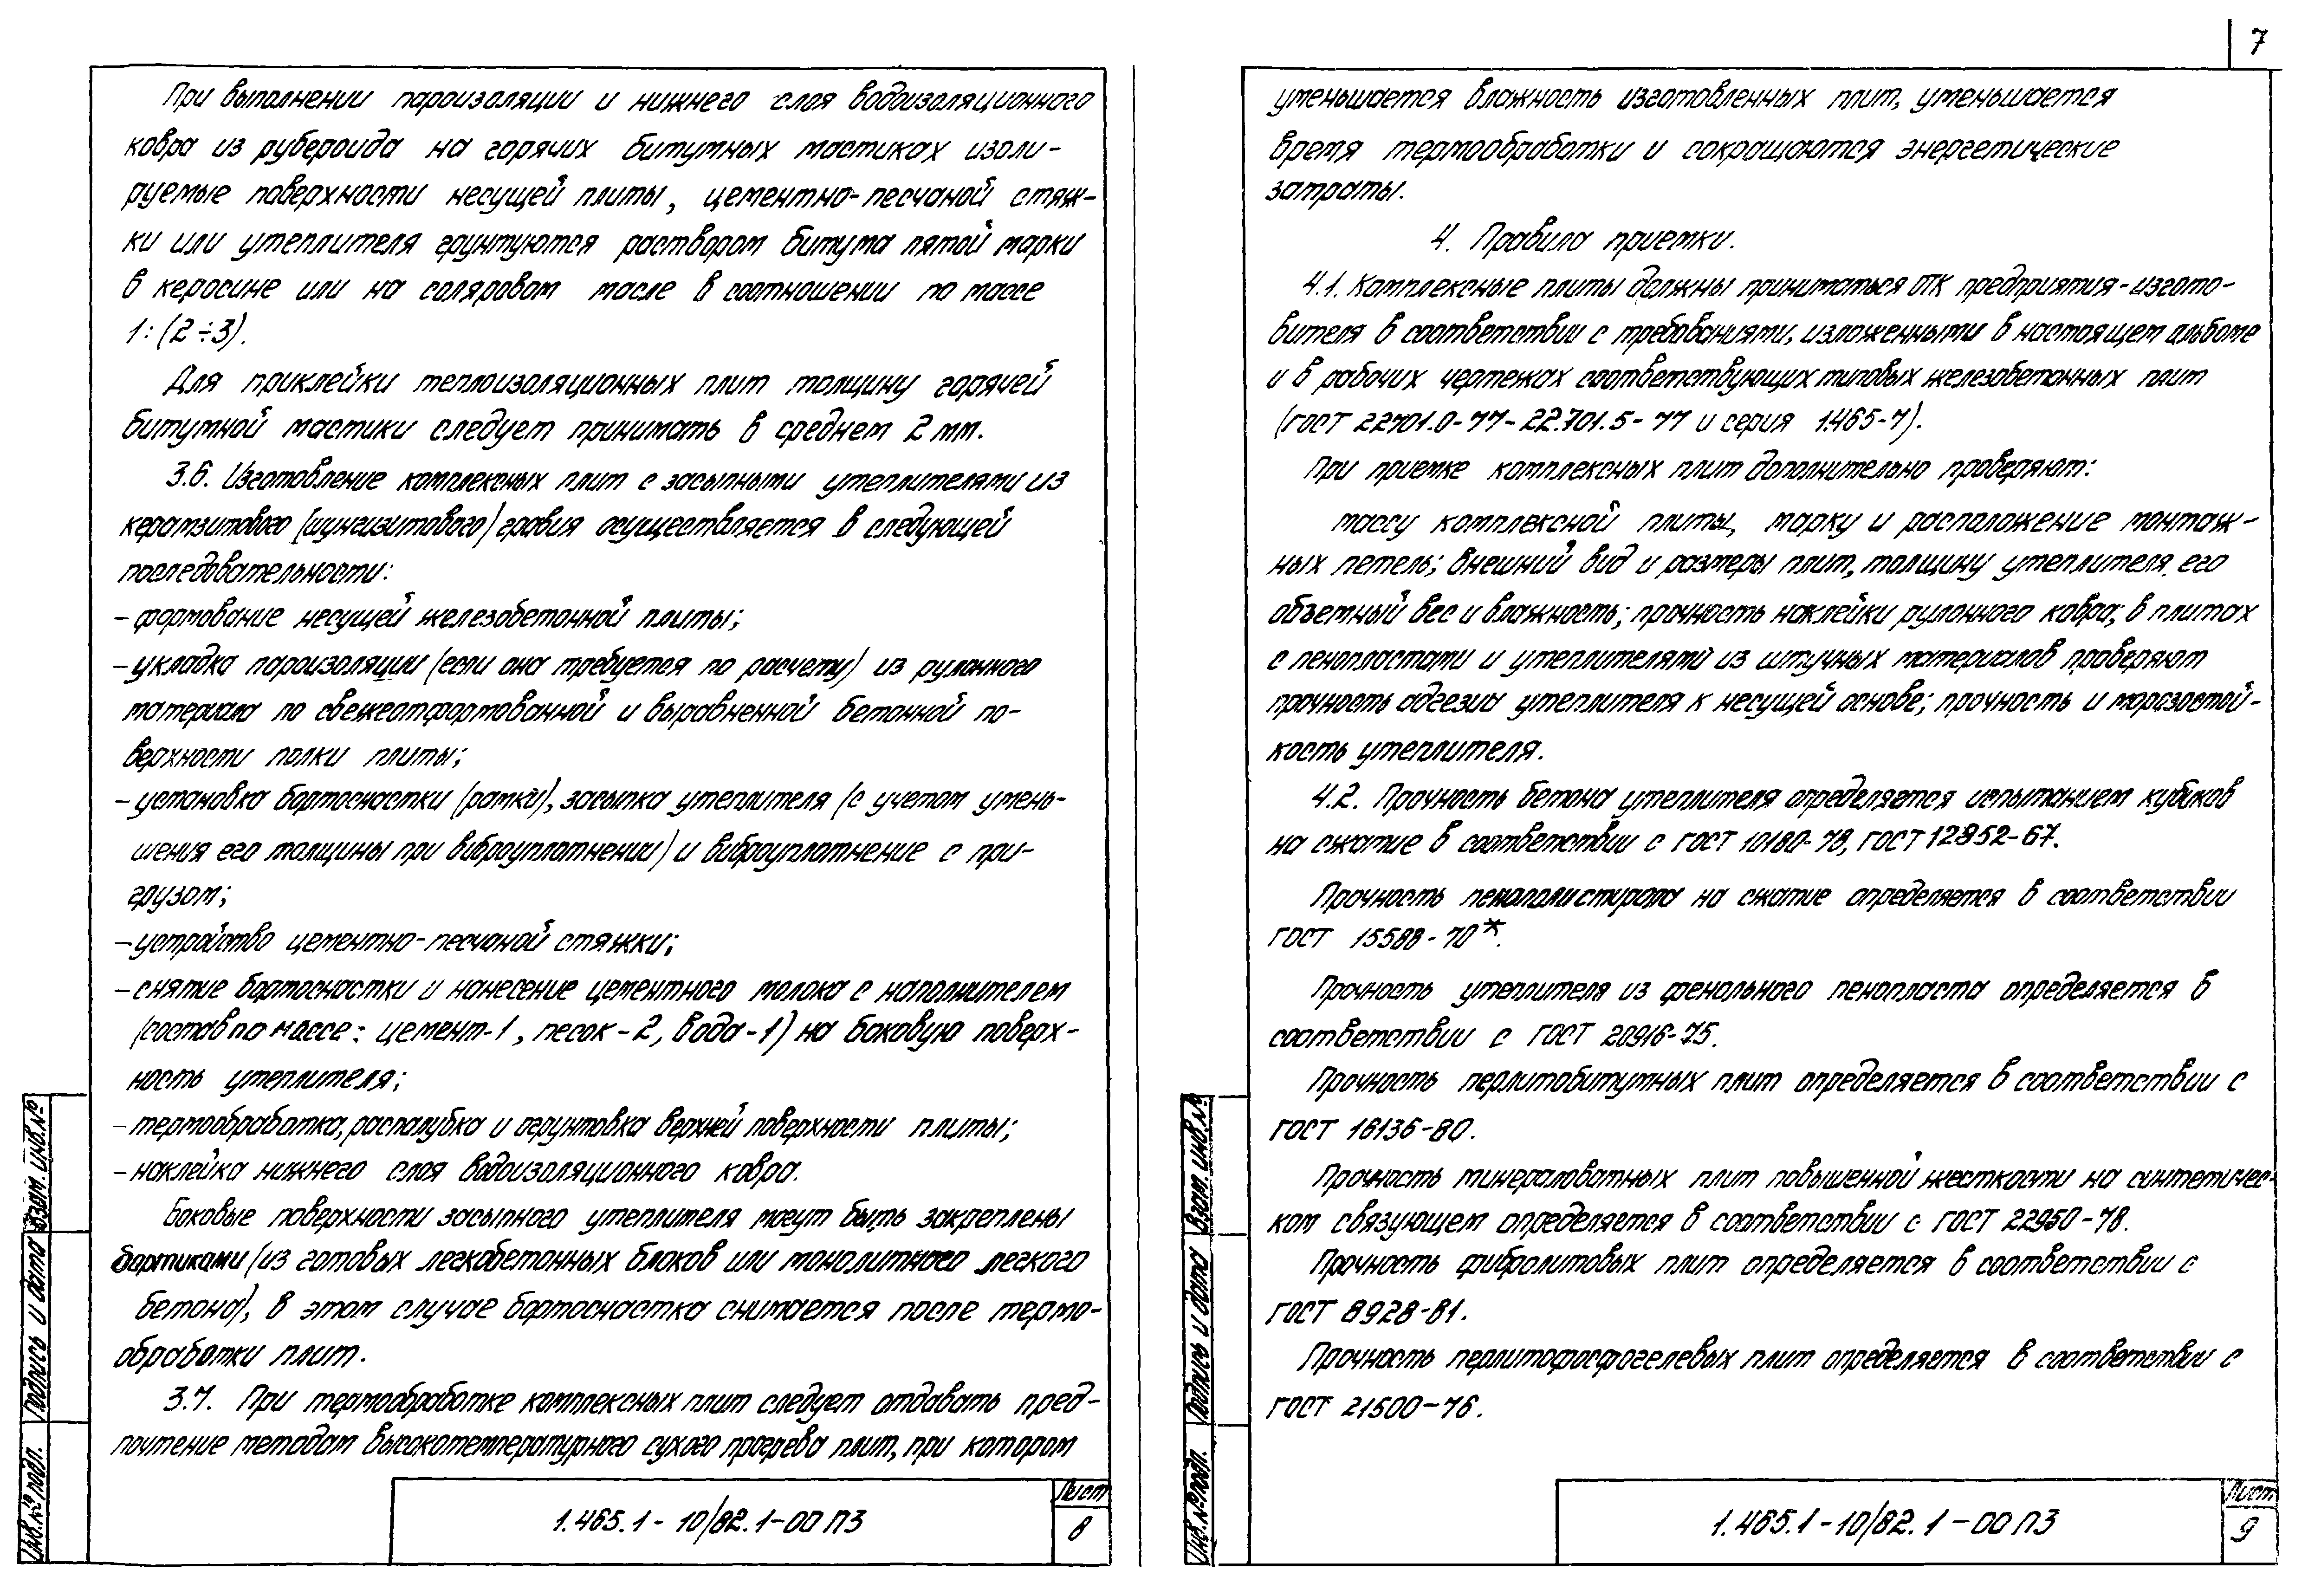 При выполнении пароизоляции и нижнего слоя водоизоляционного
ковра из рубероида на горячих битумных мастиках изоли-
руемые поверхности несущей плиты, цементно-песчаной стяж-
ки или утеплителя грунтуются раствором битума пятой марки
в керосине или на соляровом масле в соотношении по массе
1:(2÷3).
Для приклейки теплоизоляционных плит толщину горячей
битумной мастики следует принимать в среднем 2 мм.
3.6. Изготовление комплексных плит с засыпными утеплителями из
керамзитового (шунгизитового) гравия осуществляется в следующей
последовательности:
- формование несущей железобетонной плиты;
- укладка пароизоляции (если она требуется по расчету) из рулонного
материала по свежеотформованной и выравненной бетонной по-
верхности полки плиты;
- установка бортоснастки (рамки), засыпка утеплителя (с учетом умень-
шения его толщины при виброуплотнении) и виброуплотнение с при-
грузом;
- устройство цементно-песчаной стяжки;
- снятие бортоснастки и нанесение цементного молока с наполнителем
(состав по массе: цемент-1, песок-2, вода-1) на боковую поверх-
ность утеплителя;
- термообработка, распалубка и огрунтовка верхней поверхности плиты;
- наклейка нижнего слоя водоизоляционного ковра.
Боковые поверхности засыпного утеплителя могут быть закреплены
бортиками (из готовых легкобетонных блоков или монолитного легкого
бетона), в этом случае бортоснастка снимается после термо-
обработки плит.
3.7. При термообработке комплексных плит следует отдавать пред-
почтение методам высокотемпературного сухого прогрева плит, при котором
Взам. инв.№
Подпись и дата
Инв.№ подл.
1.465.1-10/82.1-00 ПЗ
Лист
8
7
уменьшается влажность изготовленных плит, уменьшается
время термообработки и сокращаются энергетические
затраты.
4. Правила приемки.
4.1. Комплексные плиты должны приниматься ОТК предприятия-изгото-
вителя в соответствии с требованиями, изложенными в настоящем альбоме
и в рабочих чертежах соответствующих типовых железобетонных плит
(ГОСТ 22701.0-77-22.701.5-77 и серия 1.465-7).
При приемке комплексных плит дополнительно проверяют:
массу комплексной плиты, марку и расположение монтаж-
ных петель; внешний вид и размеры плит, толщину утеплителя, его
объемный вес и влажность; прочность наклейки рулонного ковра; в плитах
с пенопластами и утеплителями из штучных материалов проверяют
прочность адгезии утеплителя к несущей основе; прочность и морозостой-
кость утеплителя.
4.2. Прочность бетона утеплителя определяется испытанием кубиков
на сжатие в соответствии с ГОСТ 10180-78, ГОСТ 12852-67.
Прочность пенополистирола на сжатие определяется в соответствии
ГОСТ 15588-70*.
Прочность утеплителя из фенольного пенопласта определяется в
соответствии с ГОСТ 20916-75.
Прочность перлитобитумных плит определяется в соответствии с
ГОСТ 16136-80.
Прочность минераловатных плит повышенной жесткости на синтетичес-
ком связующем определяется в соответствии с ГОСТ 22950-78.
Прочность фибролитовых плит определяется в соответствии с
ГОСТ 8928-81.
Прочность перлитофосфогелевых плит определяется в соответствии с
ГОСТ 21500-76.
Взам. инв.№
Подпись и дата
Инв.№ подл.
1.465.1-10/82.1-00 ПЗ
Лист
9